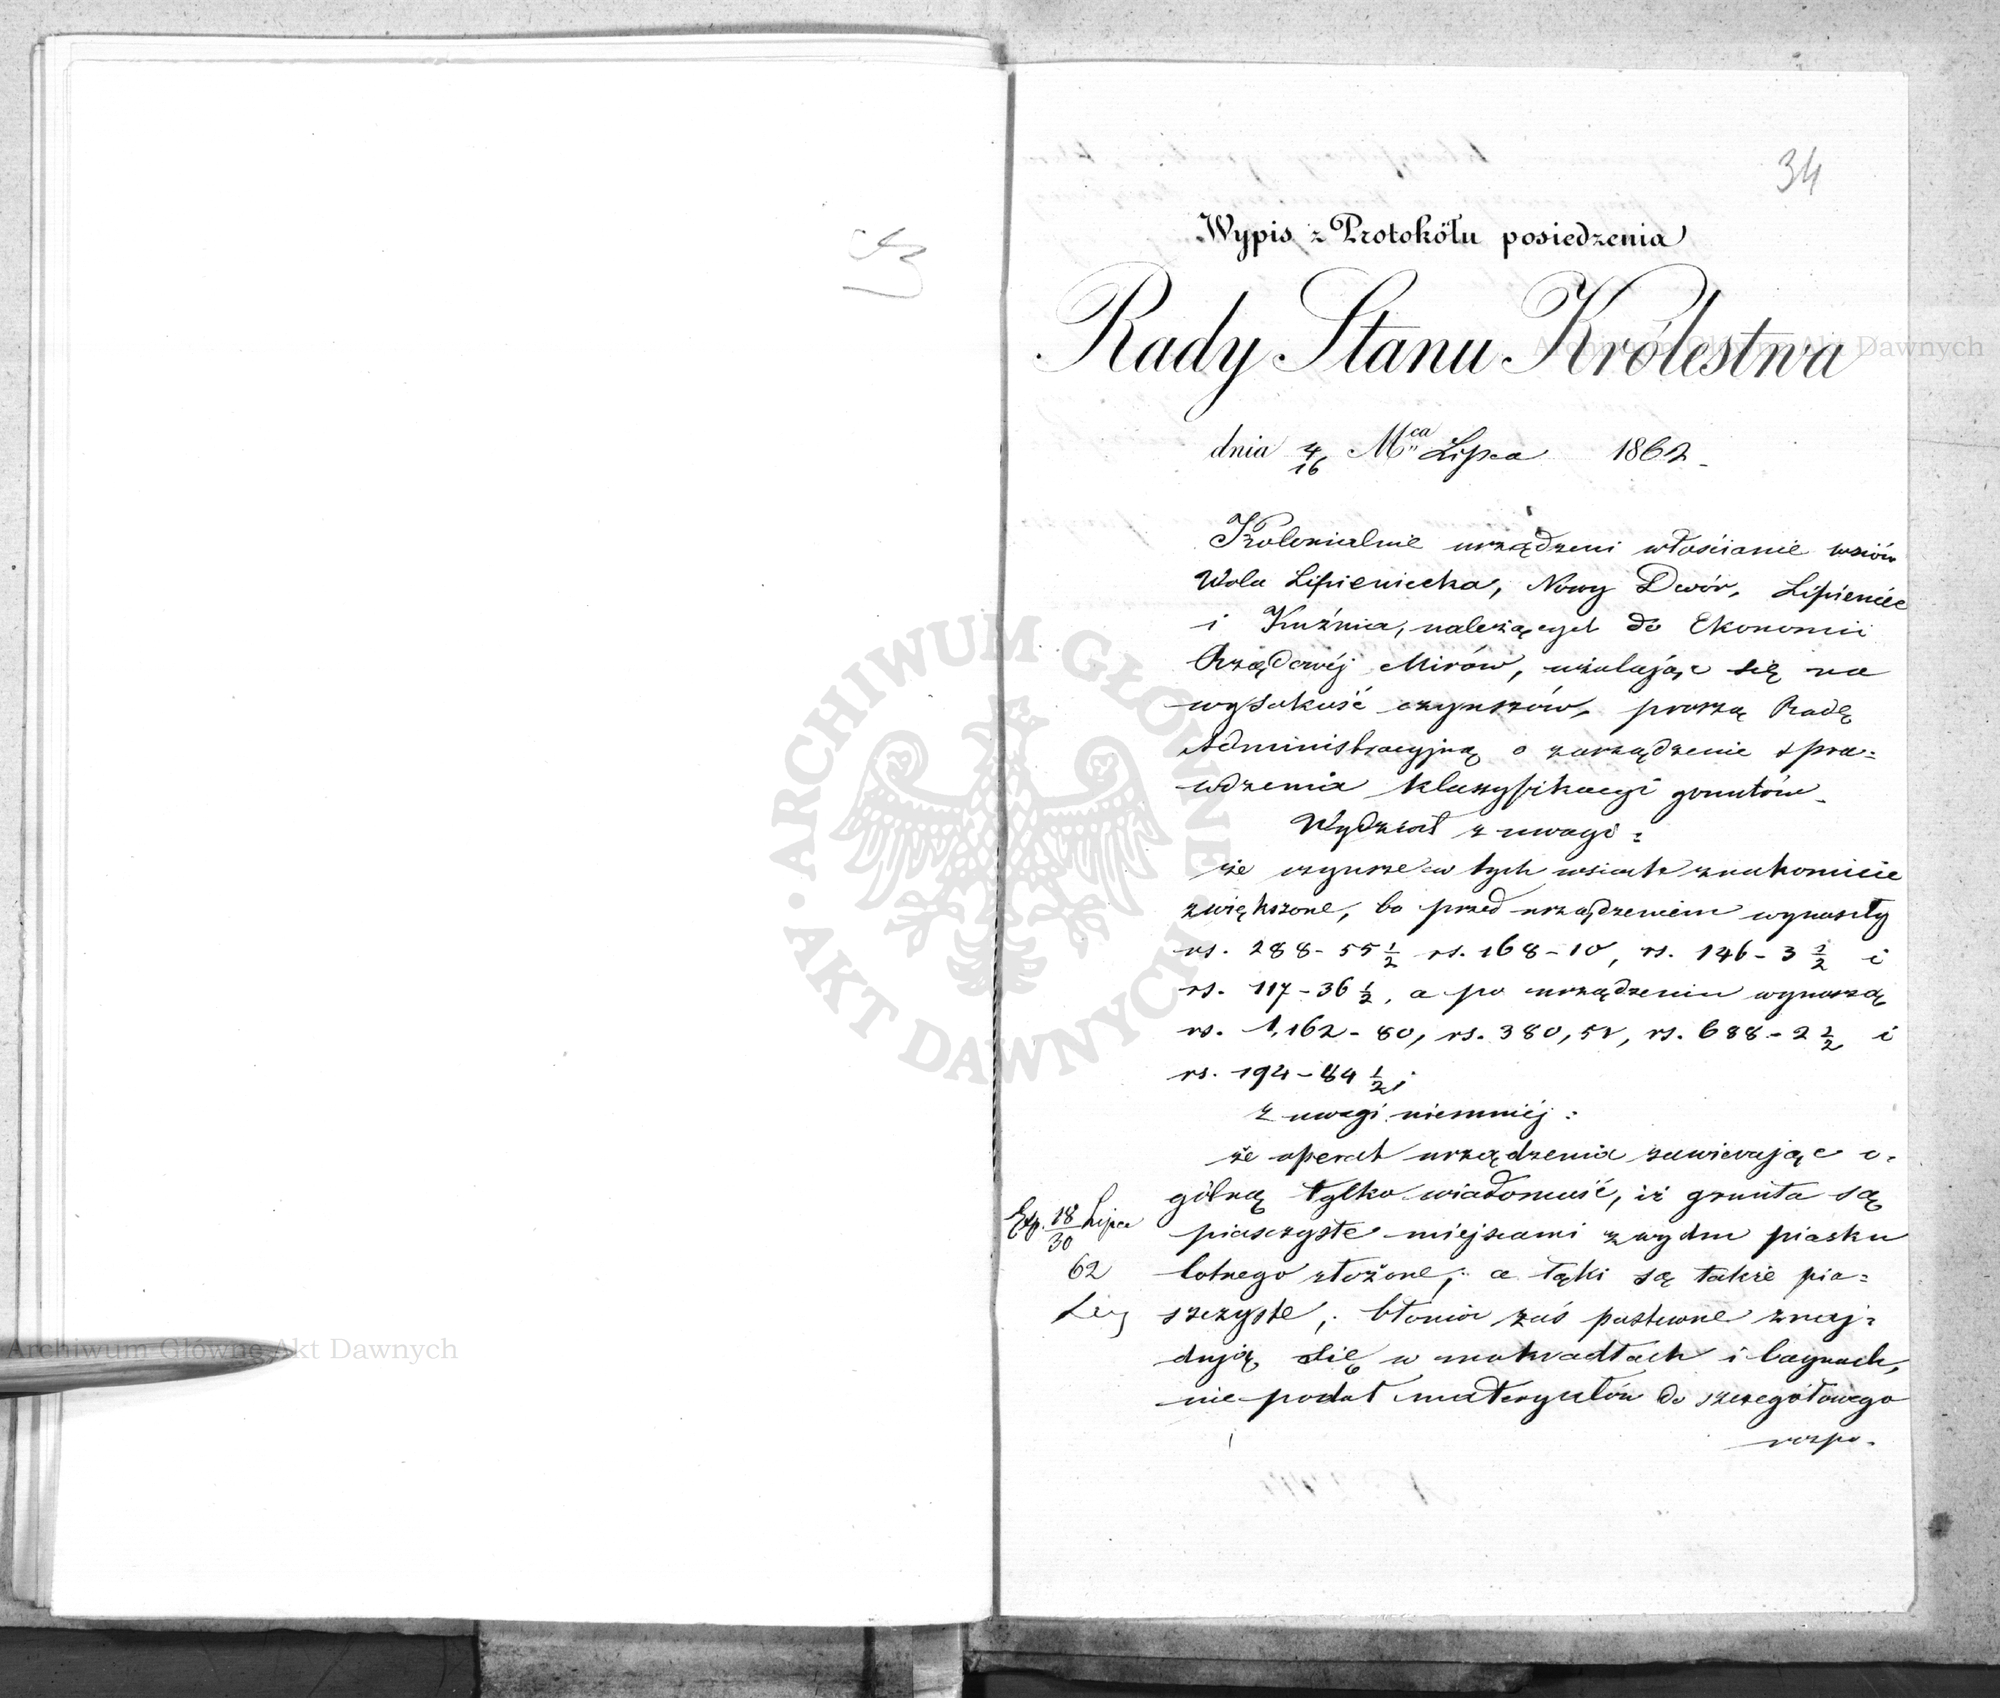 34
Wypis z Protokółu posiedzenia
Rady Stanu Królestwa
dnia 4/16 Mca Lipca 1862
Kolonialnie urządzeni włościanie wsiów
Wola Lipieniecka, Nowy Dwór, Lipieniec
i Kuźnia, należących do Ekonomii
Rządowéj Mirów, użalając się na
wysokość czynszów, proszą Radę
Administracyjną o zarządzenie spra=
wdzenia klassyfikacyi gruntów.
Wydział z uwagi:
że czynsze w tych wsiach znakomicie
zwiększone, bo przed urządzeniem wynosiły
rs. 288-55 1/2 rs. 168-10, rs. 146-3 1/2 i
rs. 117-36 1/2, a po urządzeniu wynoszą
rs. 1,162-80, rs. 380,52, rs. 688-2 1/2 i
rs. 194-84 1/2;
z uwagi niemniéj:
że operat urządzenia zawierając o=
gólną tylko wiadomość, iż grunta są
piaszczyste miejscami z wydm piasku
lotnego złożone; a łąki są także pia=
szczyste; błonia zaś pastewne znaj=
dują się w mokradłach i bagnach,
nie podał materyałów do szczegółowego
rozpo-
Exp. 18/30 Lipca
62
ARCHIWUM GŁÓWNE AKT DAWNYCH
Archiwum Główne Akt Dawnych
Archiwum Główne Akt Dawnych